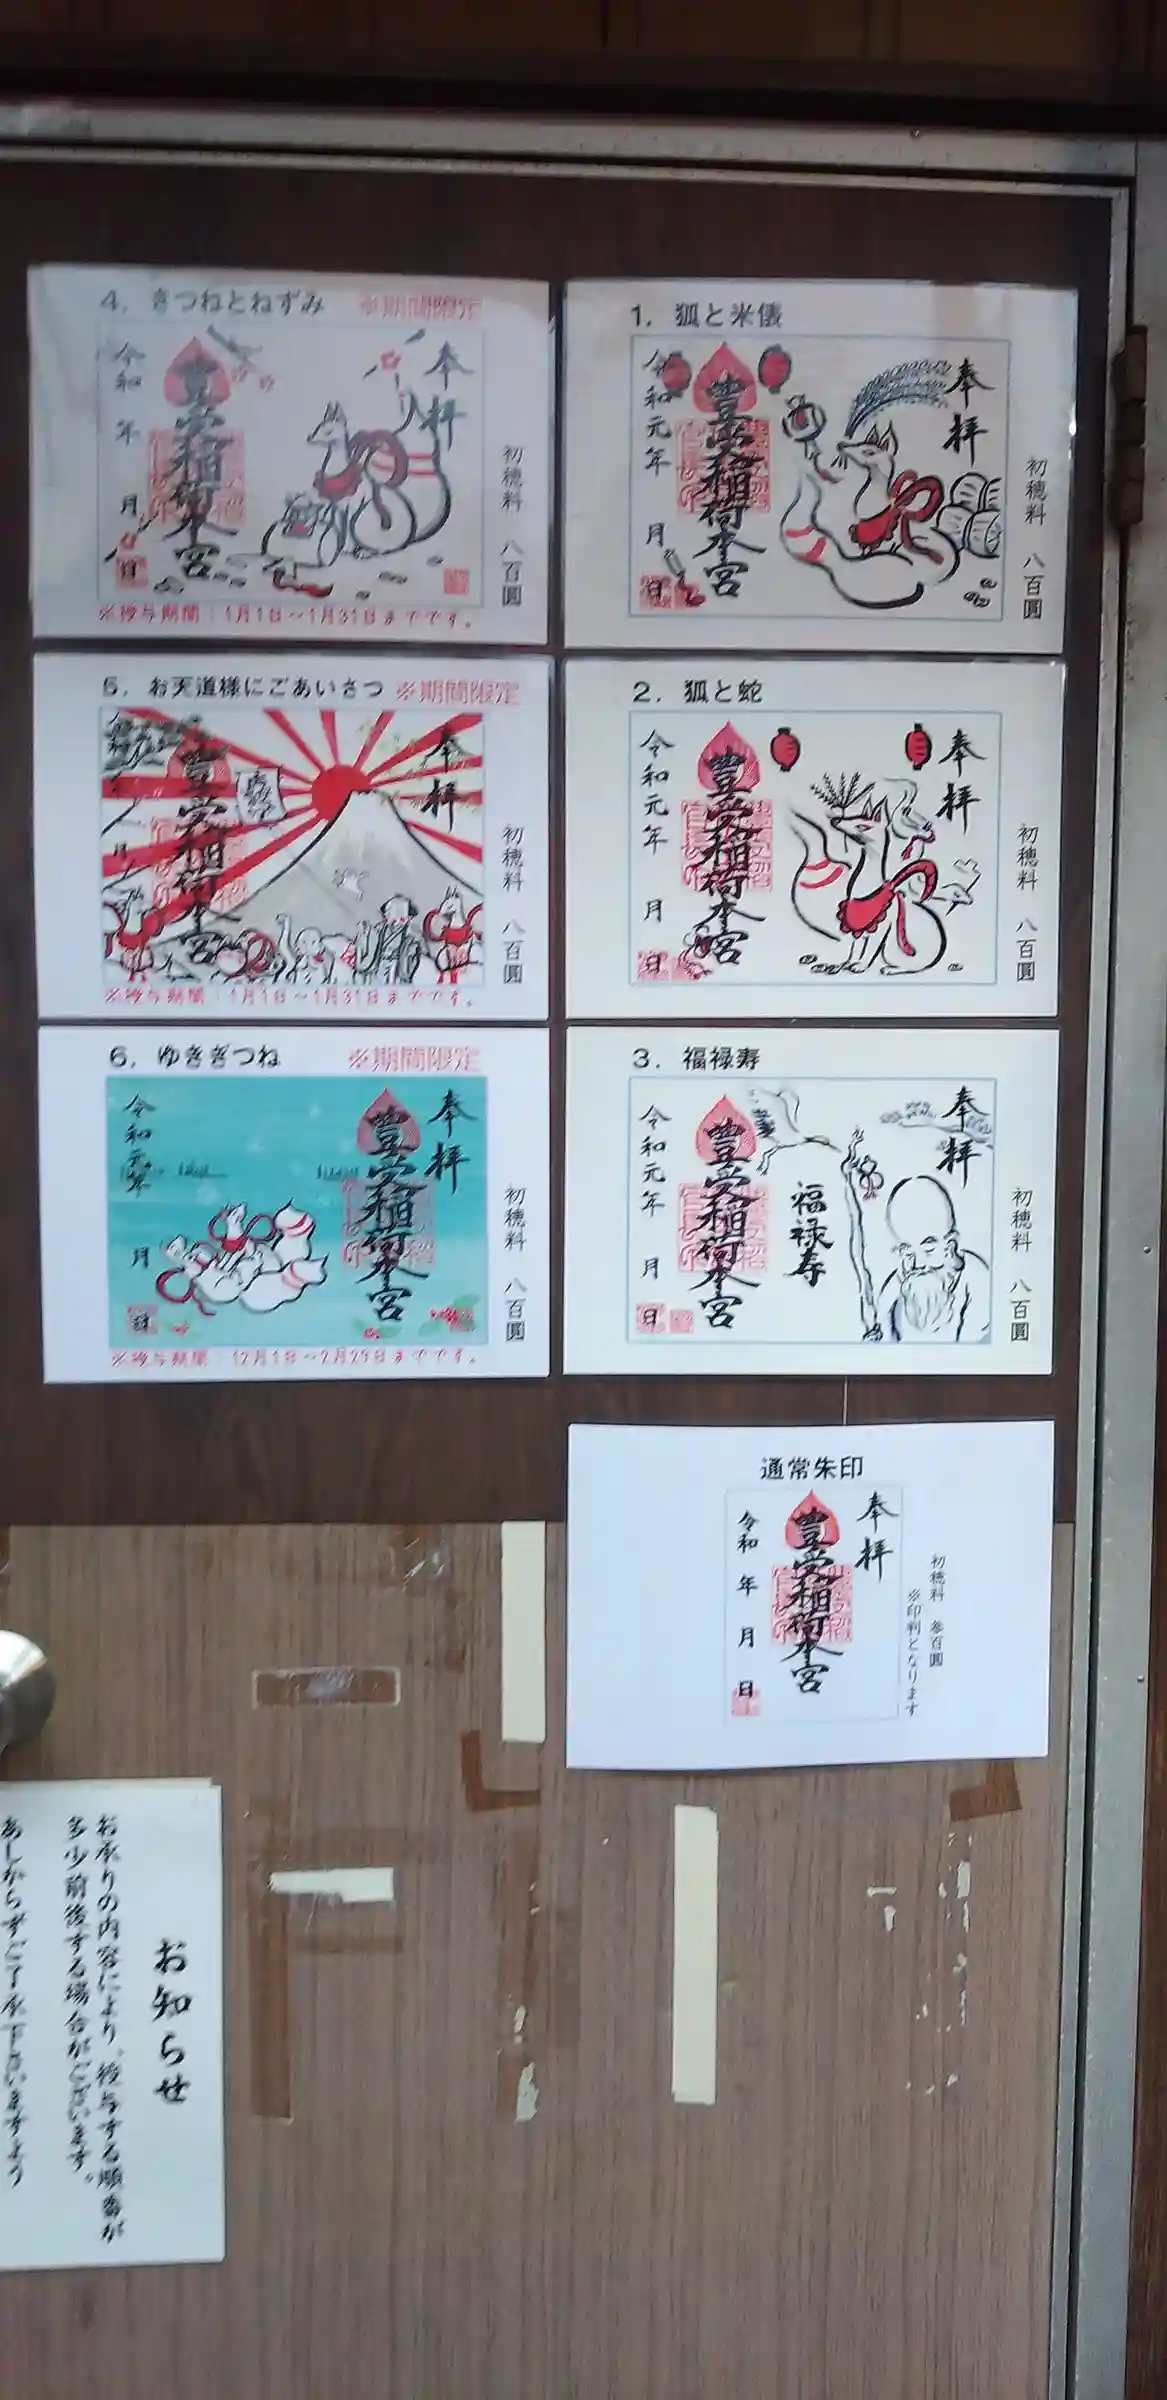 1. 狐と米俵
奉拝
豊受稲荷本宮
令和元年 月 日
初穂料 八百圓
2. 狐と蛇
奉拝
豊受稲荷本宮
令和元年 月 日
初穂料 八百圓
3. 福禄寿
奉拝
福禄寿
豊受稲荷本宮
令和元年 月 日
初穂料 八百圓
4. きつねとねずみ ※期間限定
奉拝
豊受稲荷本宮
令和 年 月 日
初穂料 八百圓
※授与期間:1月1日~1月31日までです。
5. お天道様にごあいさつ ※期間限定
奉拝
豊受稲荷本宮
月
初穂料 八百圓
※授与期間:1月1日~1月31日までです。
6. ゆきぎつね ※期間限定
奉拝
豊受稲荷本宮
令和元年 月 日
初穂料 八百圓
※授与期間:12月1日~2月29日までです。
通常朱印
奉拝
豊受稲荷本宮
令和 年 月 日
初穂料 参百圓
※印判となります
お知らせ
お承りの内容により、授与する順番が
多少前後する場合がございます。
あしからずご了承下さいますよう